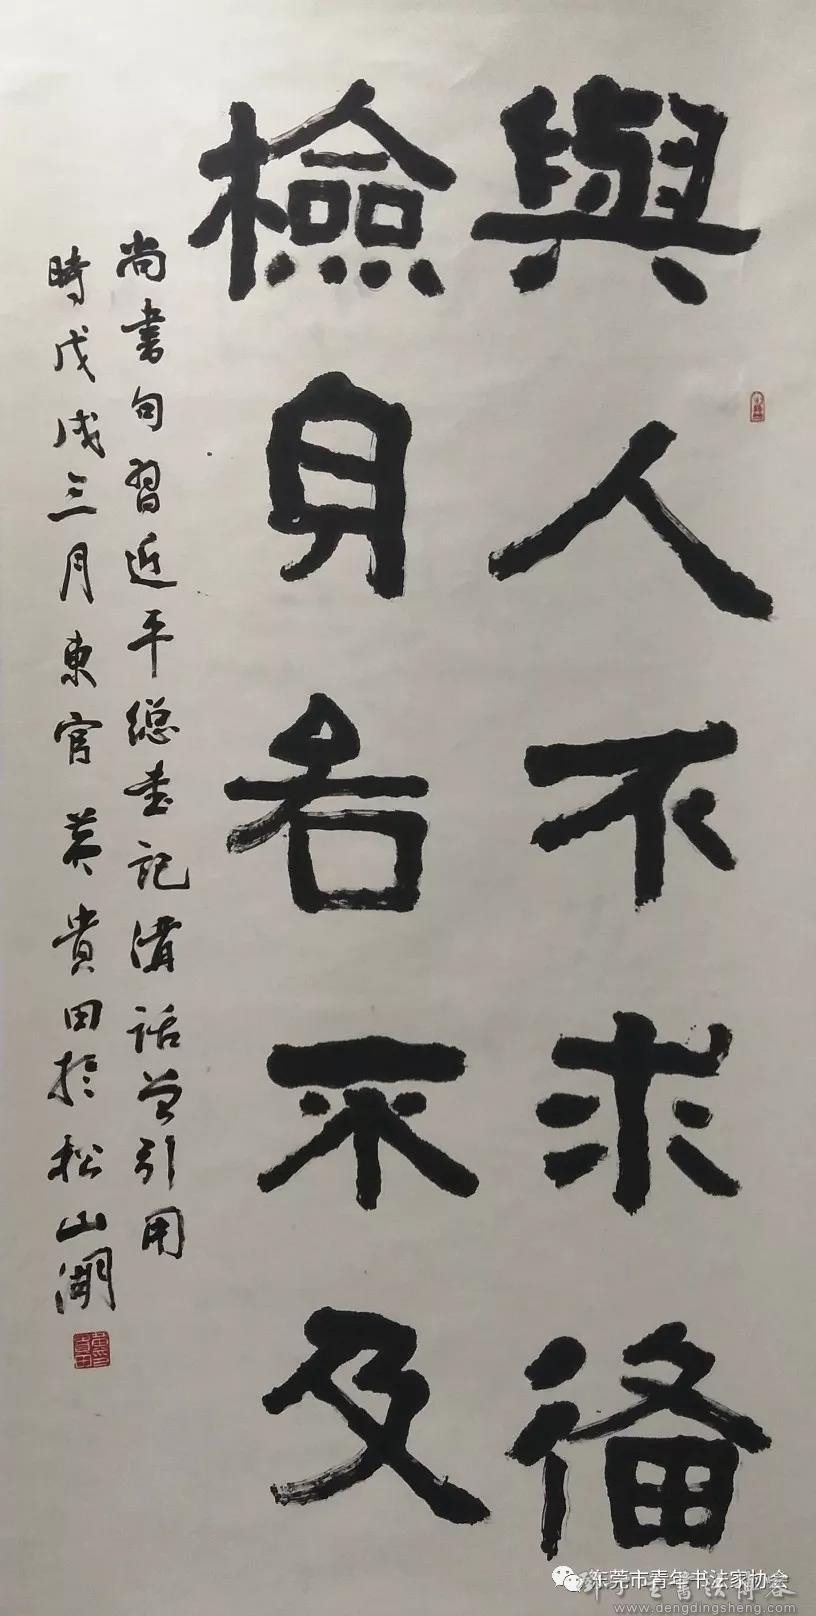 與人不求備
檢身若不及
尚書句習近平總書記講話曾引用
時戊戌三月東官黃貴田於松山湖
东莞市青年书法家协会
www.dengdingsheng.com